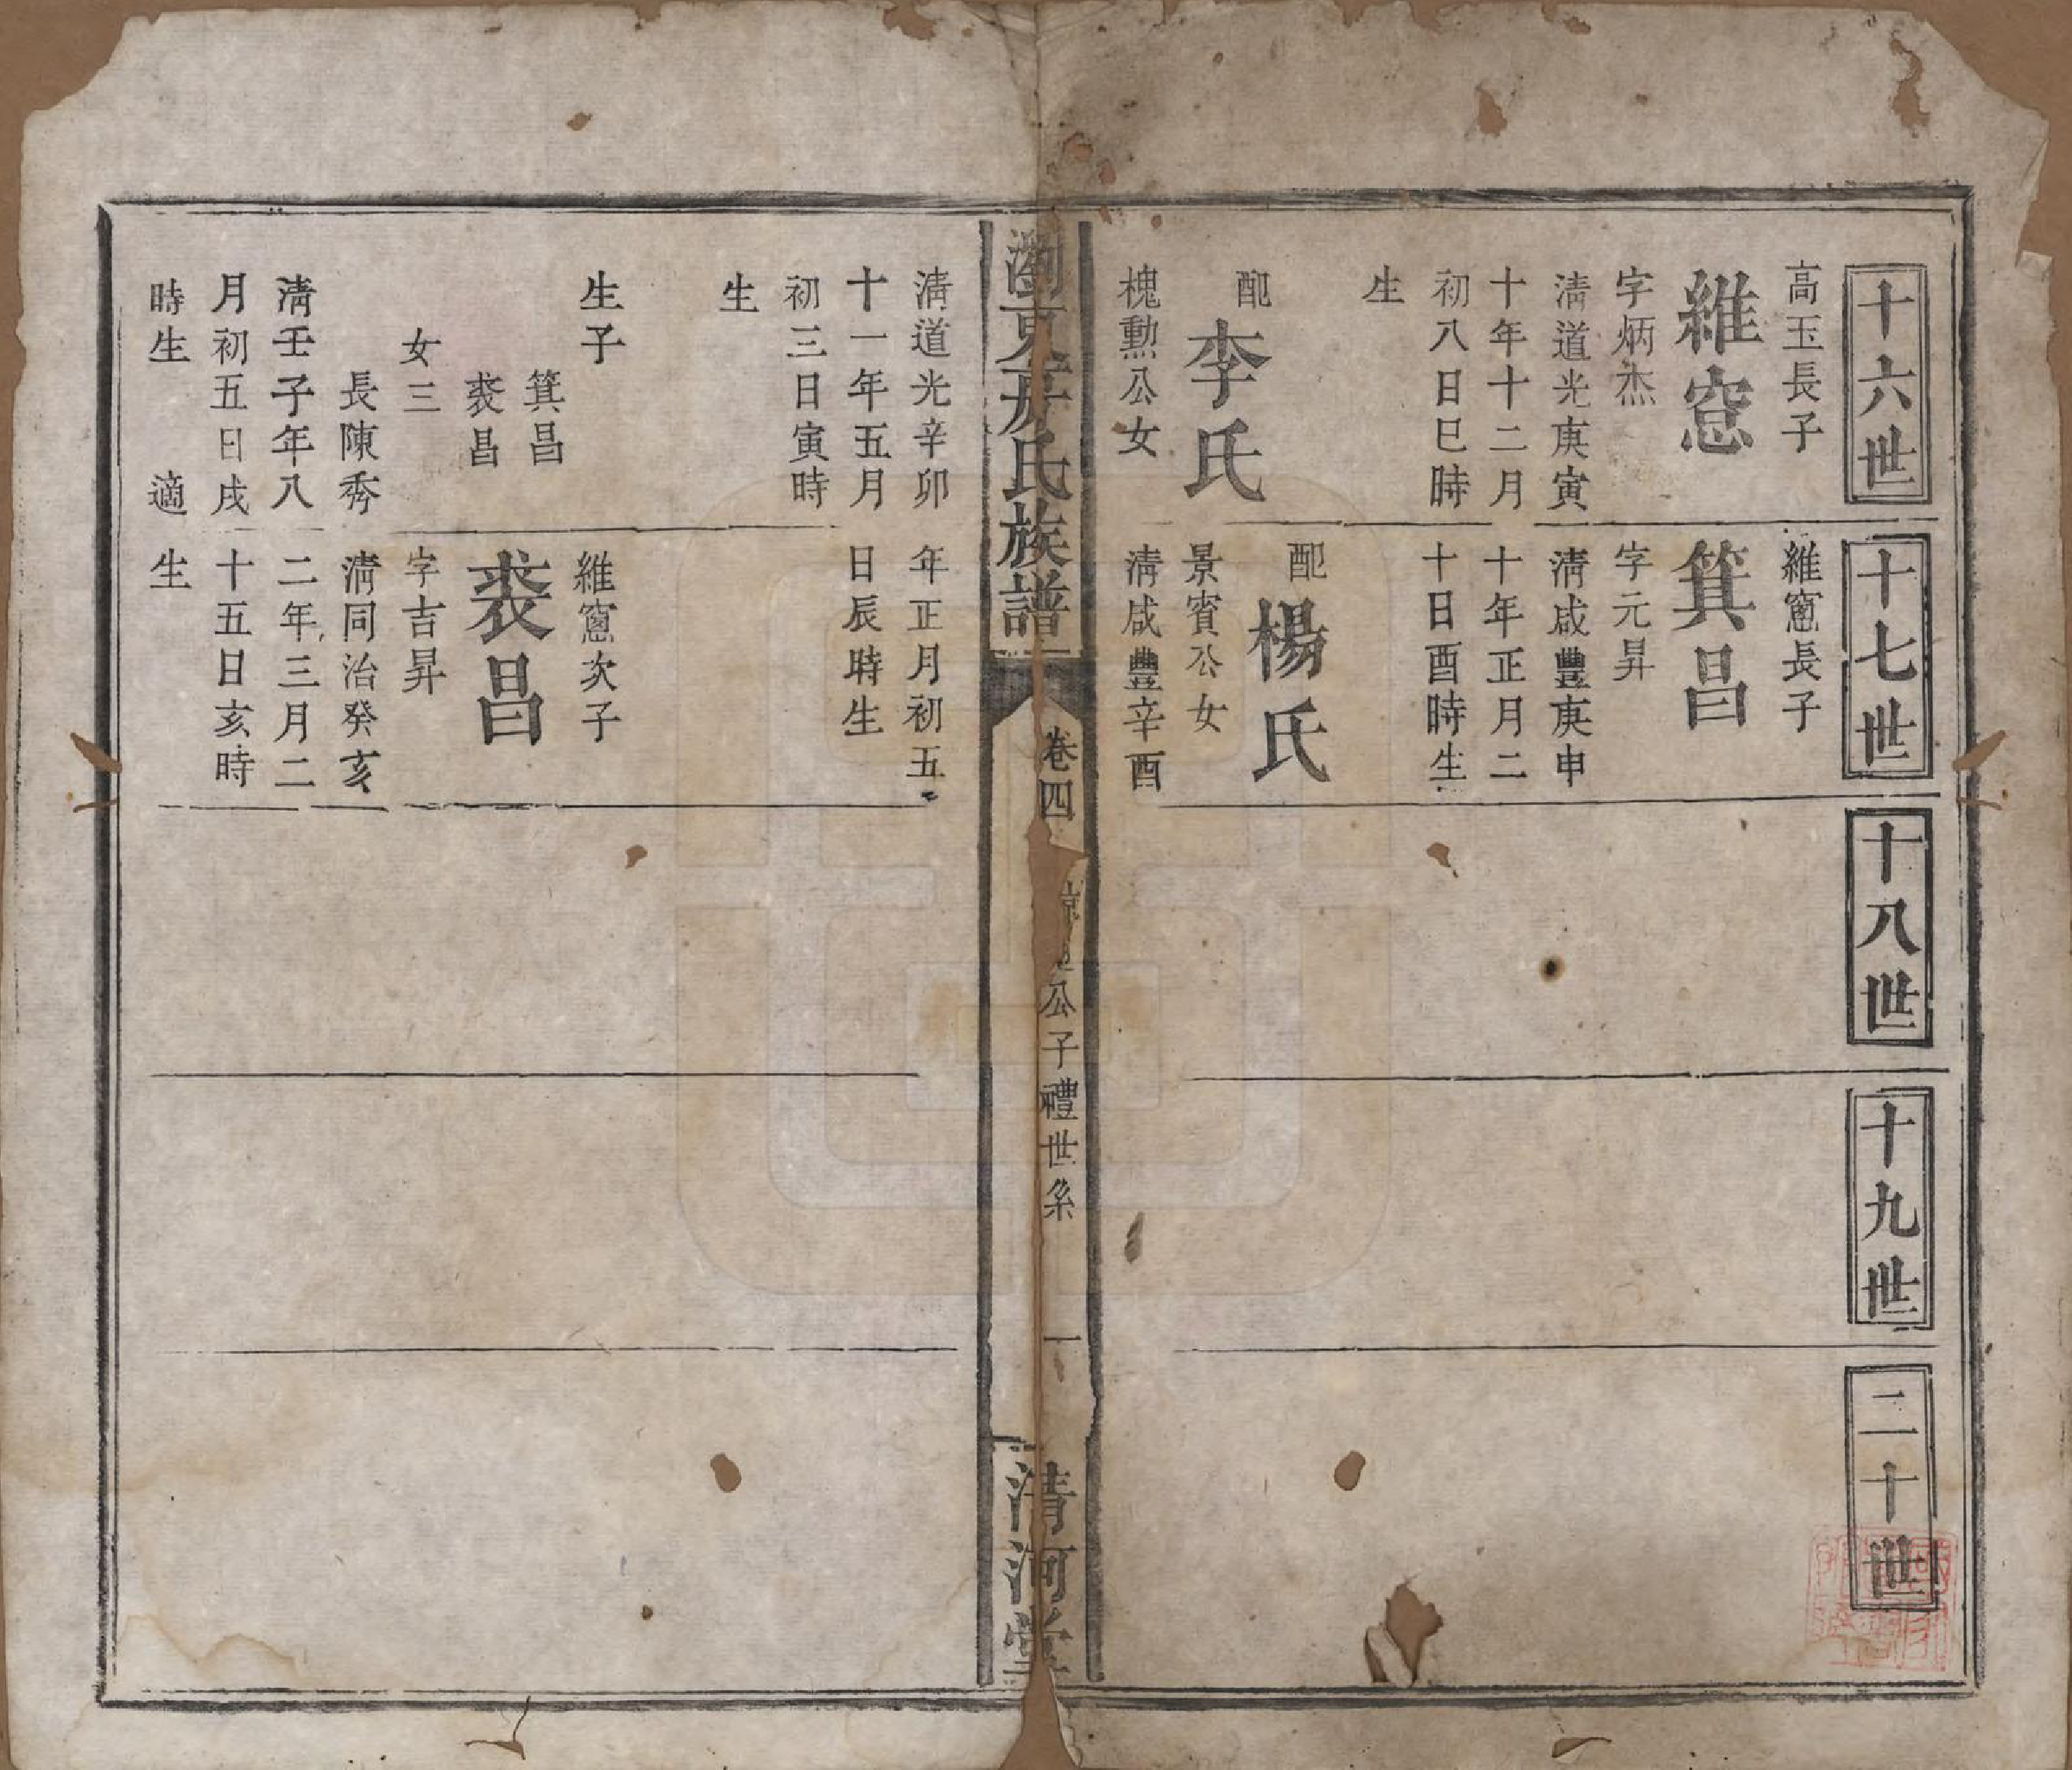 十六世
高玉長子
維窓
字炳杰
清道光庚寅
十年十二月
初八日巳時
生
配
李氏
槐勲公女
十七世
維窻長子
箕昌
字元昇
清咸豐庚申
十年正月二
十日酉時生
配
楊氏
景賓公女
清咸豐辛酉
十八世
十九世
二十世
氏族譜
卷四
公子禮世系
一
清河堂
清道光辛卯
十一年五月
初三日寅時
生
生子
箕昌
裘昌
女三
長陳秀
清壬子年八
月初五日戌
時生 適
年正月初五
日辰時生
維窻次子
裘昌
字吉昇
清同治癸亥
二年三月二
十五日亥時
生